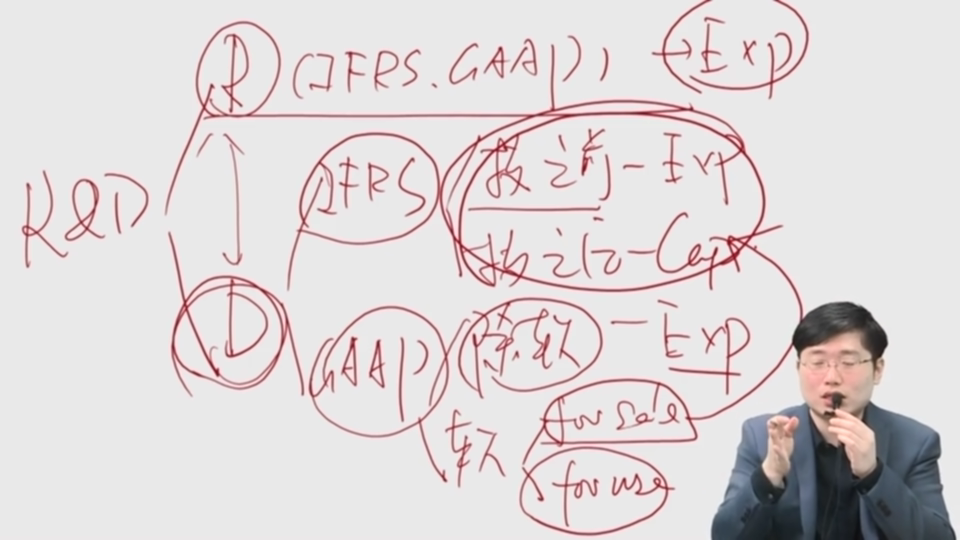 R (IFRS. GAAP) → Exp
R&D
IFRS
技之前 - Exp
技之后 - Cap
D
GAAP
除软 - Exp
软
for sale
for use